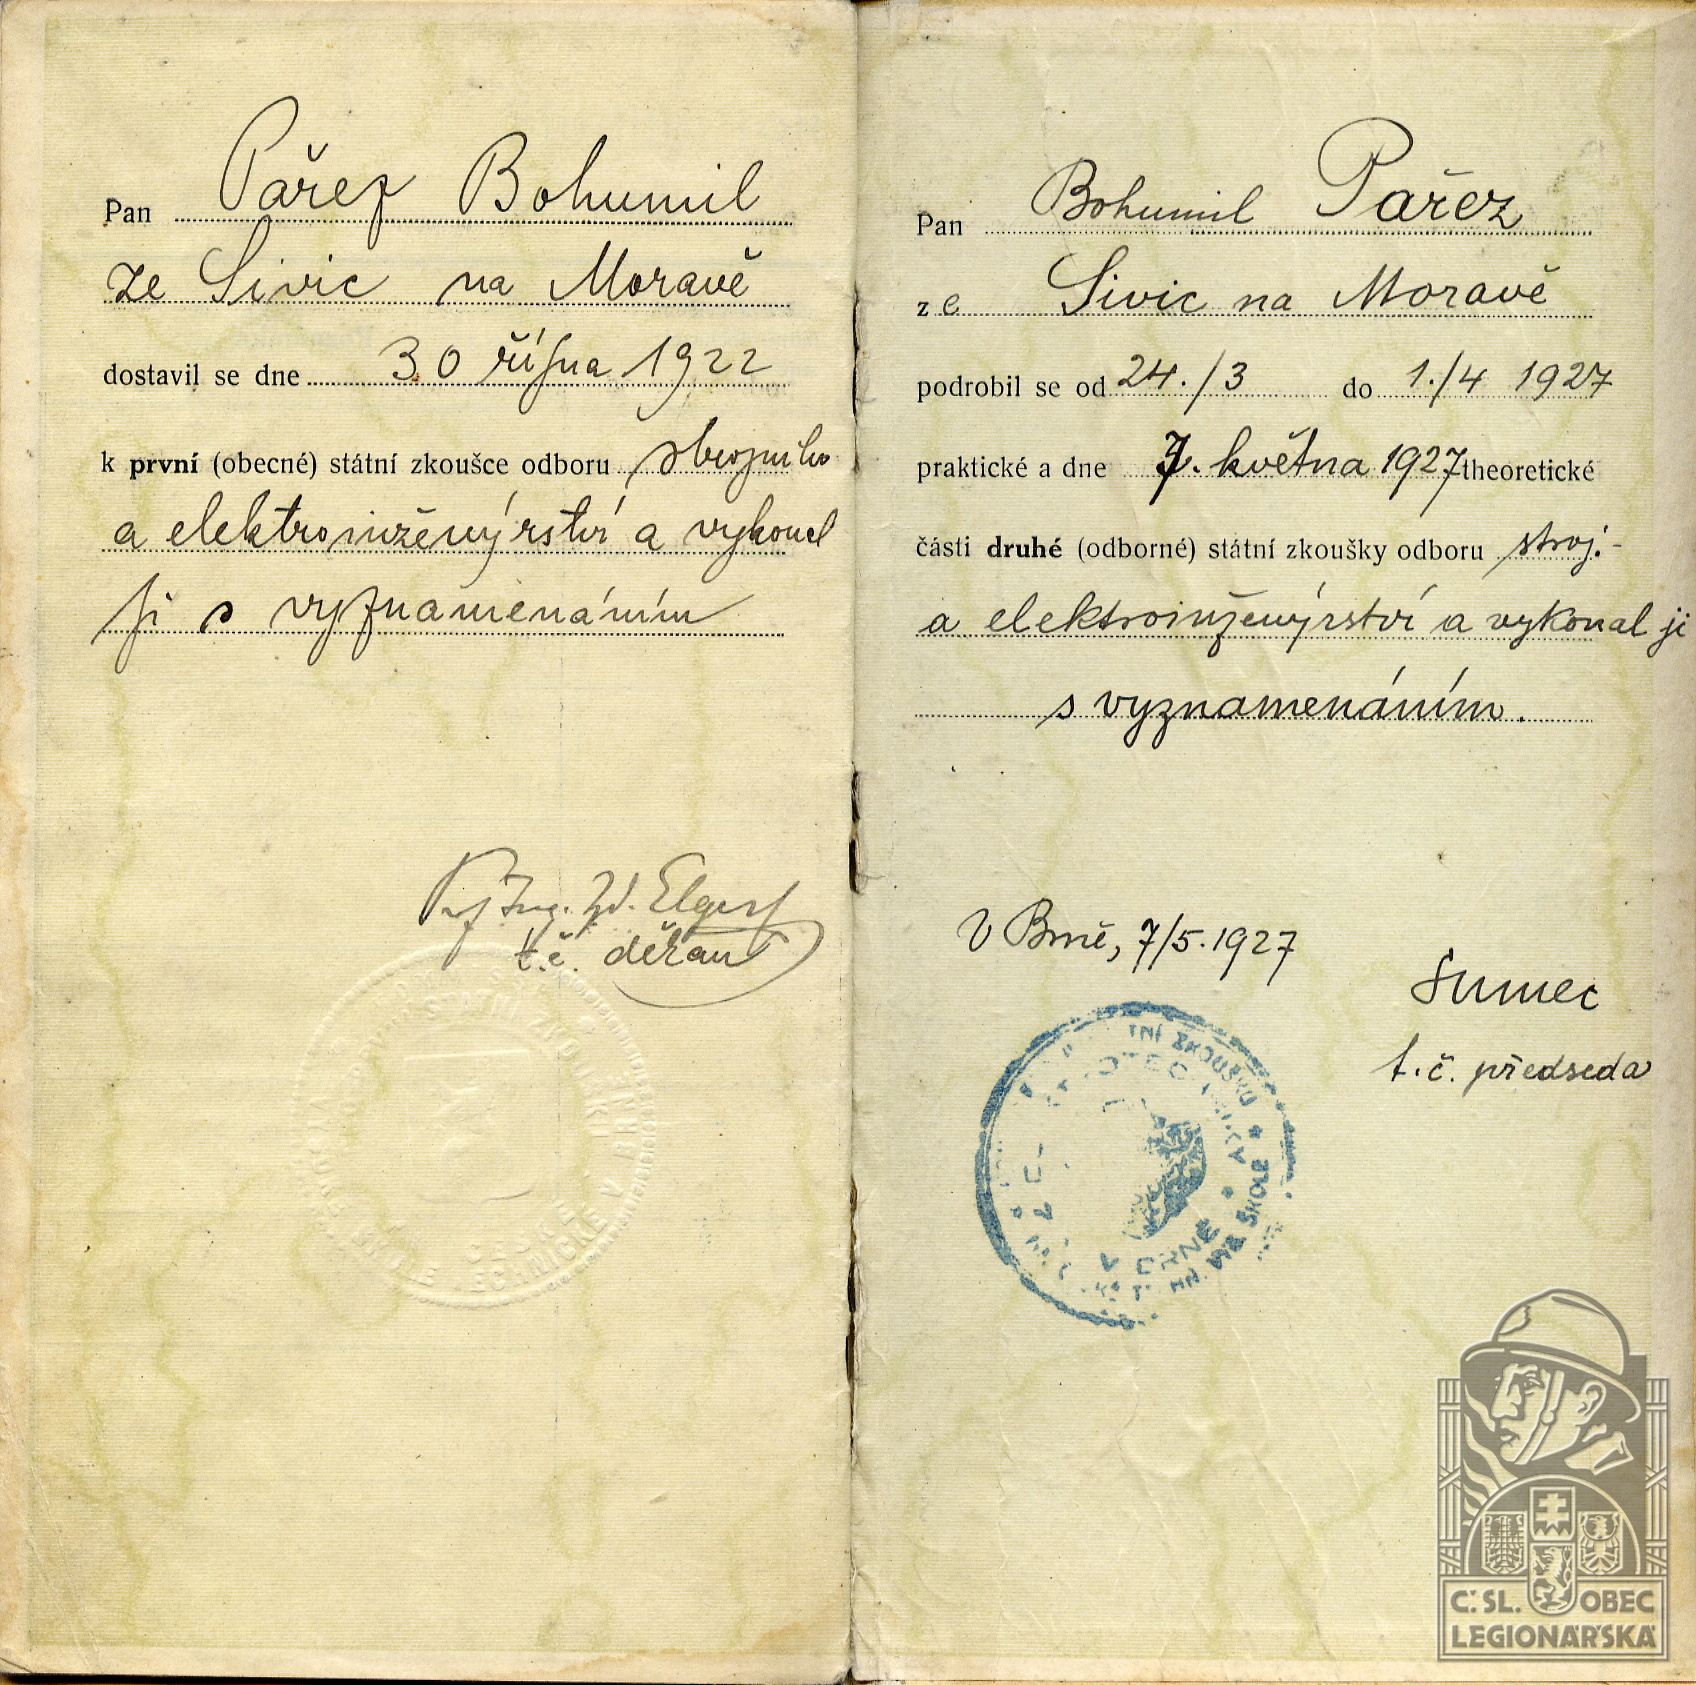 Pan Pařez Bohumil
ze Sivic na Moravě
dostavil se dne 30 října 1922
k první (obecné) státní zkoušce odboru strojního
a elektroinženýrství a vykonal
ji s vyznamenáním
Prof Ing. Zd. Elgert
t.č. děkan
Pan Bohumil Pařez
ze Sivic na Moravě
podrobil se od 24./3 do 1./4 1927
praktické a dne 7. května 1927 theoretické
části druhé (odborné) státní zkoušky odboru stroj.-
a elektroinženýrství a vykonal ji
s vyznamenáním.
V Brně, 7/5.1927
Sumec
t.č. předseda
STÁTNÍ ZKOUŠKU
ŠKOLE
V BRNĚ
Č.SL. OBEC
LEGIONÁŘSKÁ